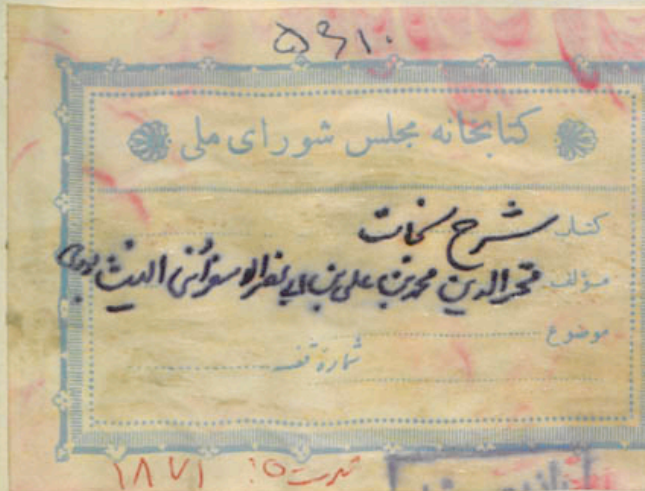 ۵۹۱۰
کتابخانه مجلس شورای ملی
کتاب شرح نجات
مؤلف فخرالدین محمد بن علی بن ابی نصر الاسفرائنی النیشابوری
موضوع
شماره قفسه
۱۸۷۱